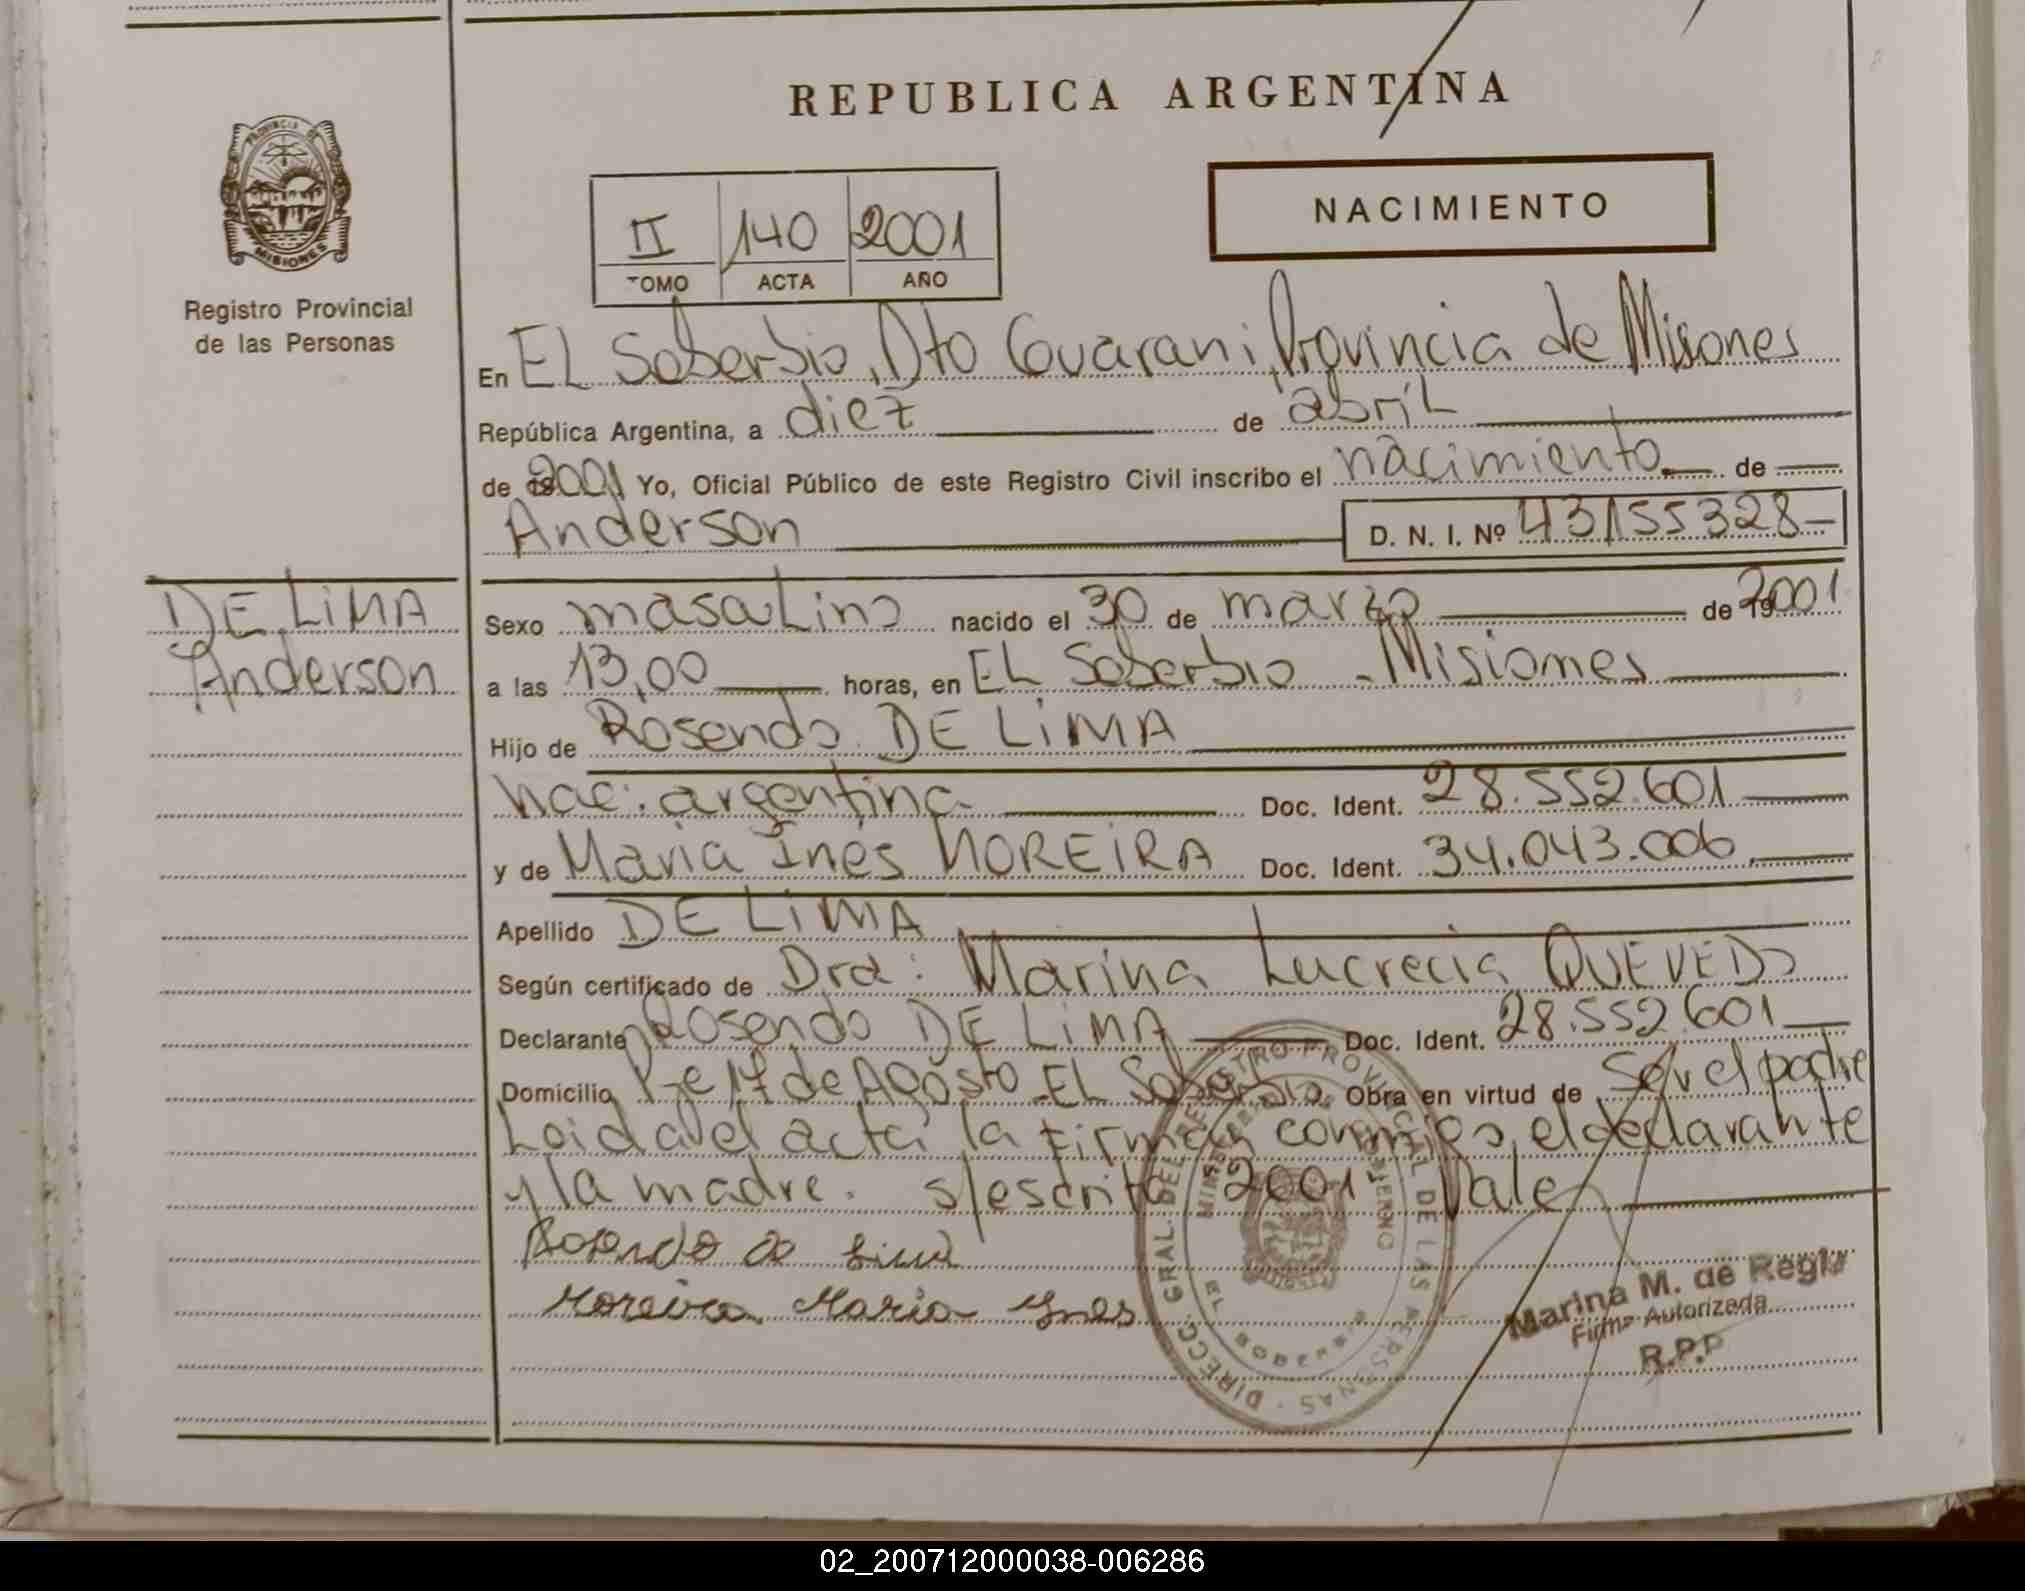 REPUBLICA ARGENTINA
PROVINCIA DE
MISIONES
Registro Provincial
de las Personas
NACIMIENTO
II 140 2001
TOMO ACTA AÑO
En EL Soberbio, Dto Guarani, Provincia de Misiones
República Argentina, a diez de abril
de 2001 Yo, Oficial Público de este Registro Civil inscribo el nacimiento de
Anderson D. N. I. Nº 43155328
DE LIMA
Anderson
Sexo masculino nacido el 30 de marzo de 2001
a las 13,00 horas, en EL Soberbio - Misiones
Hijo de Rosendo DE LIMA
nac. argentina Doc. Ident. 28.552.601
y de Maria Inés MOREIRA Doc. Ident. 34.043.006
Apellido DE LIMA
Según certificado de Dra: Marina Lucrecia QUEVEDO
Declarante Rosendo DE LIMA Doc. Ident. 28.552.601
Domicilio 17 de Agosto EL Soberbio Obra en virtud de ser el padre
Leida el acta la firman conmigo, el declarante
y la madre. s/escrito 2001 Vale
Rosendo de Lima
Moreira Maria Ines
DIRECC. GRAL. DEL REGISTRO PROVINCIAL DE LAS PERSONAS
EL SOBERBIO
Marina M. de Regis
Firma Autorizada
R.P.P
02_200712000038-006286